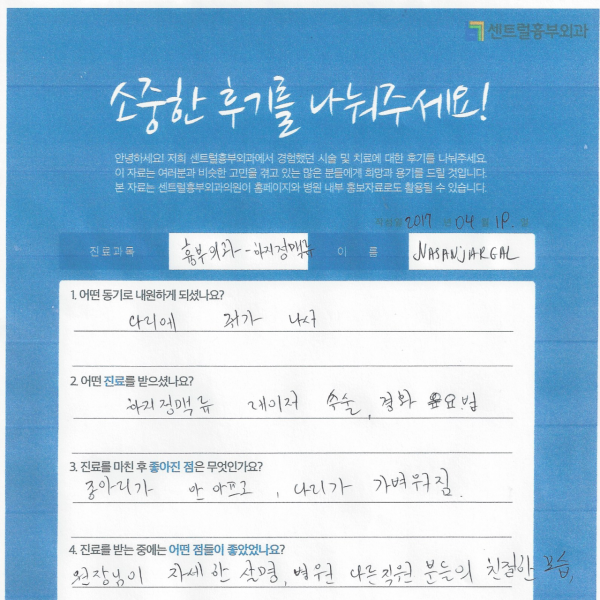 센트럴흉부외과
소중한 후기를 나눠주세요!
안녕하세요! 저희 센트럴흉부외과에서 경험했던 시술 및 치료에 대한 후기를 나눠주세요.
이 자료는 여러분과 비슷한 고민을 겪고 있는 많은 분들에게 희망과 용기를 드릴 것입니다.
본 자료는 센트럴흉부외과의원이 홈페이지와 병원 내부 홍보자료로도 활용될 수 있습니다.
2017 년 04 월 19. 일
진료과목 흉부외과--하지정맥류 이 름 NASANJARGAL
1. 어떤 동기로 내원하게 되셨나요?
다리에 쥐가 나서
2. 어떤 진료를 받으셨나요?
하지정맥류 레이저 수술, 경화 요법
3. 진료를 마친 후 좋아진 점은 무엇인가요?
종아리가 안 아프고, 다리가 가벼워짐.
4. 진료를 받는 중에는 어떤 점들이 좋았었나요?
원장님이 자세한 설명, 병원 다른직원 분들의 친절한 모습.